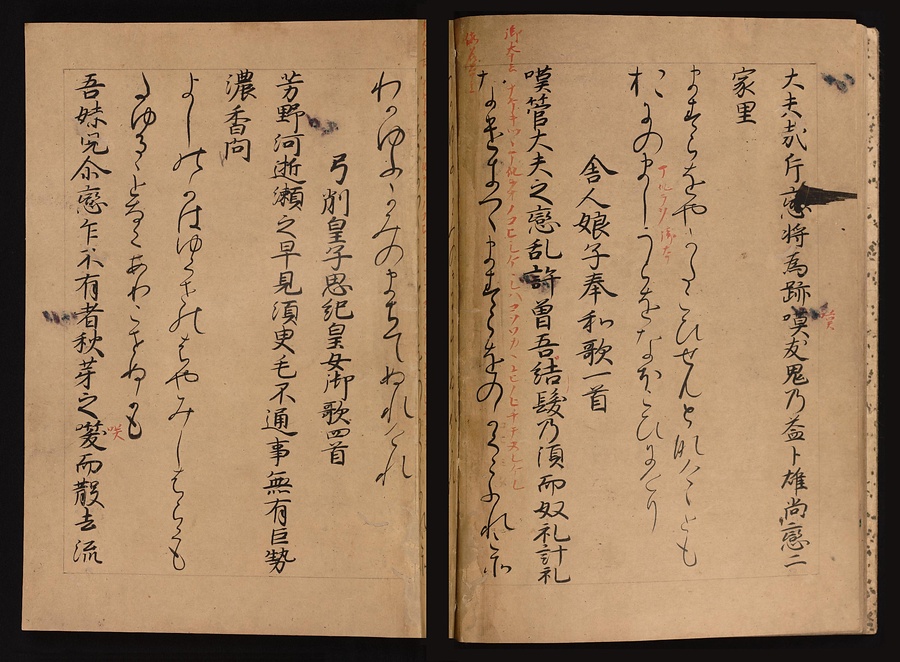 大夫哉片戀将為跡嘆友鬼乃益卜雄尚戀二
家里
ますらをやかたこひせんとなけくとも
おにのましらをなほこひにけり
舎人娘子奉和歌一首
嘆管大夫之戀乱許曽吾結髪乃漬而奴礼計礼
なけきつゝますらをのこふれこそ
わかゆふかみのひちてぬれけれ
弓削皇子思紀皇女御歌四首
芳野河逝瀬之早見須臾毛不通事無有巨勢
濃香問
よしのかはゆくせのはやみしはらくも
たゆることなくあわこせぬかも
吾妹兒尒戀乍不有者秋芽之咲而散去流
咲